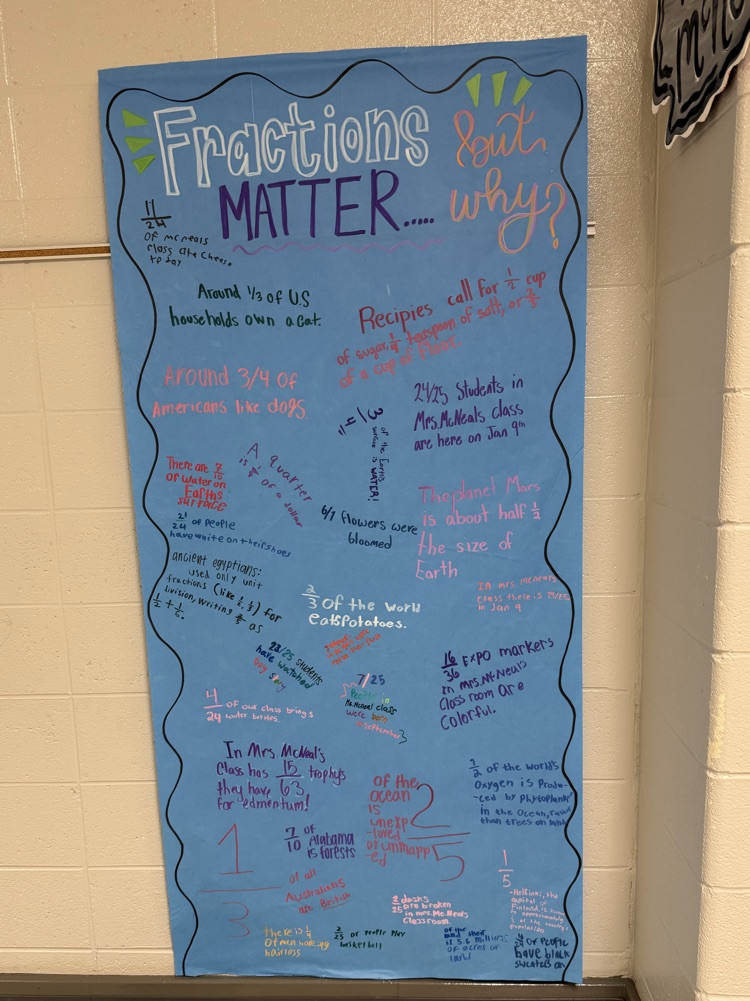 Fractions
MATTER.....
but
why?
11/24
of mcneals
class ate cheese
today
Around 1/3 of US
households own a cat.
Recipies call for 1/2 cup
of sugar, 1/4 teaspoon of salt, or 2/3
of a cup of
Around 3/4 of
Americans like dogs.
24/25 Students in
Mrs.McNeals class
are here on Jan 9th
3/4
of the Earth's
surface is
WATER!
There are 7/10
of water on
Earths
surface
A quarter
is 1/4 of a dollar
6/7 flowers were
bloomed
The planet Mars
is about half 1/2
the size of
Earth
21/24 of people
have white on their shoes
ancient egyptians:
used only unit
fractions (like 1/2, 1/3) for
division, writing as
1/2 + 1/5.
2/3 of the world
eats potatoes.
In mrs. mcneals
class there is 24/25
in Jan 9
23/25 students
have watched
toy story
4/24 of our class brings
water bottles.
7/25
People in
Mr.Mcneal class
were born
September
16/36 EXPO markers
in mrs.McNeal's
Classroom are
colorful.
In Mrs. McNeal's
Class has 15/63 trophys
they have
for edmentum!
of the
ocean
is
unexp
-lored
or unmapp
-ed
2/5
1/2 of the world's
Oxygen is Produ-
-ced by Phytoplankt
in the Ocean, rather
than trees on land
7/10 of
Alabama
is forests
1/3
of all
Australians
are British
1/5
-Helsinki, the
capital of
Finland, is home
to approximately
1/5 of the country's
population
2/25 desks
are broken
in mrs.McNeals
Classroom
there is
of men having
hairloss
2/25 of people play
basketball
of the
land
is 5.6 millions
of acres of
land
of People
have black
sweaters on
McNe